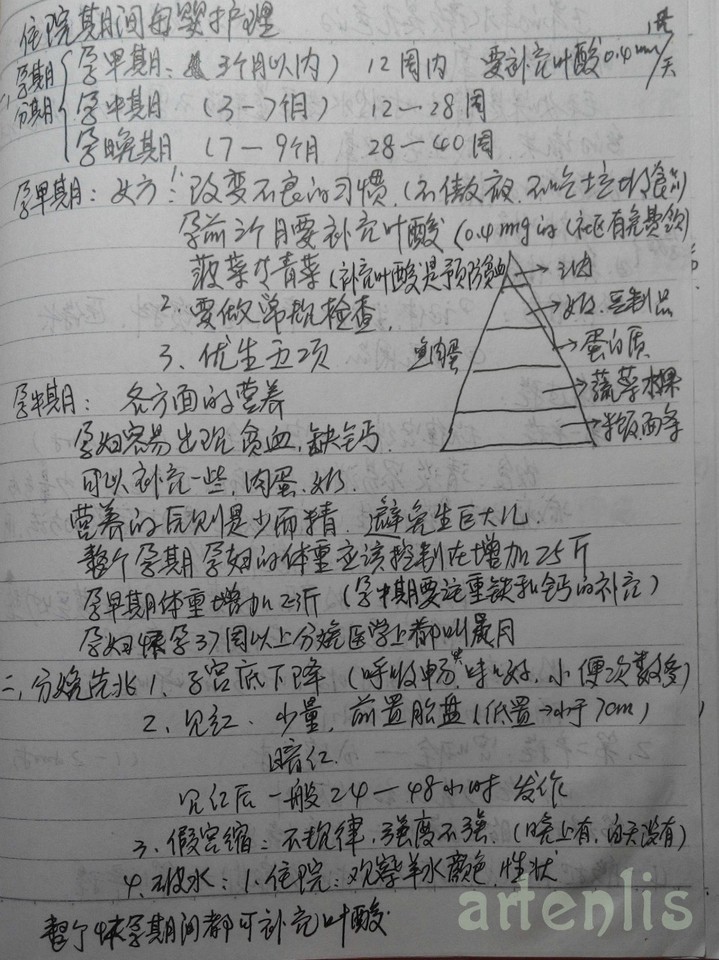 住院期间母婴护理
一、孕期分期
孕早期：3个月以内） 12周内 要补充叶酸0.4mm/天
孕中期 （3—7个月） 12—28周
孕晚期 （7—9个月 28—40周
孕早期：女方：1.改变不良的习惯，（不傲夜，不吃垃圾食品）
孕前3个月要补充叶酸（0.4mg的（社区有免费领）
菠菜 青菜（补充叶酸是预防贫血
2. 要做常规检查，
3、优生五项
油
奶、豆制品
鱼肉蛋
蛋白质
蔬菜水果
米饭，面条
孕中期： 各方面的营养
孕妇容易出现贫血，缺钙，
可以补充一些，肉蛋、奶，
营养的原则是少而精，避免生巨大儿．
整个孕期孕妇的体重应该控制在增加25斤
孕早期体重增加2-3斤（孕中期要注重铁和钙的补充）
孕妇怀孕37周以上分娩医学上都叫足月
二、分娩先兆 1、子宫底下降（呼吸畅，味口好，小便次数多）
2、见红．少量，前置胎盘（低置→小于7cm）
暗红．
见红后一般24—48小时 发作
3、假宫缩：不规律，强度不强．（晚上有，白天没有）
4、破水：1.住院：观察羊水颜色，性状
整个怀孕期间都可补充叶酸
artenlis